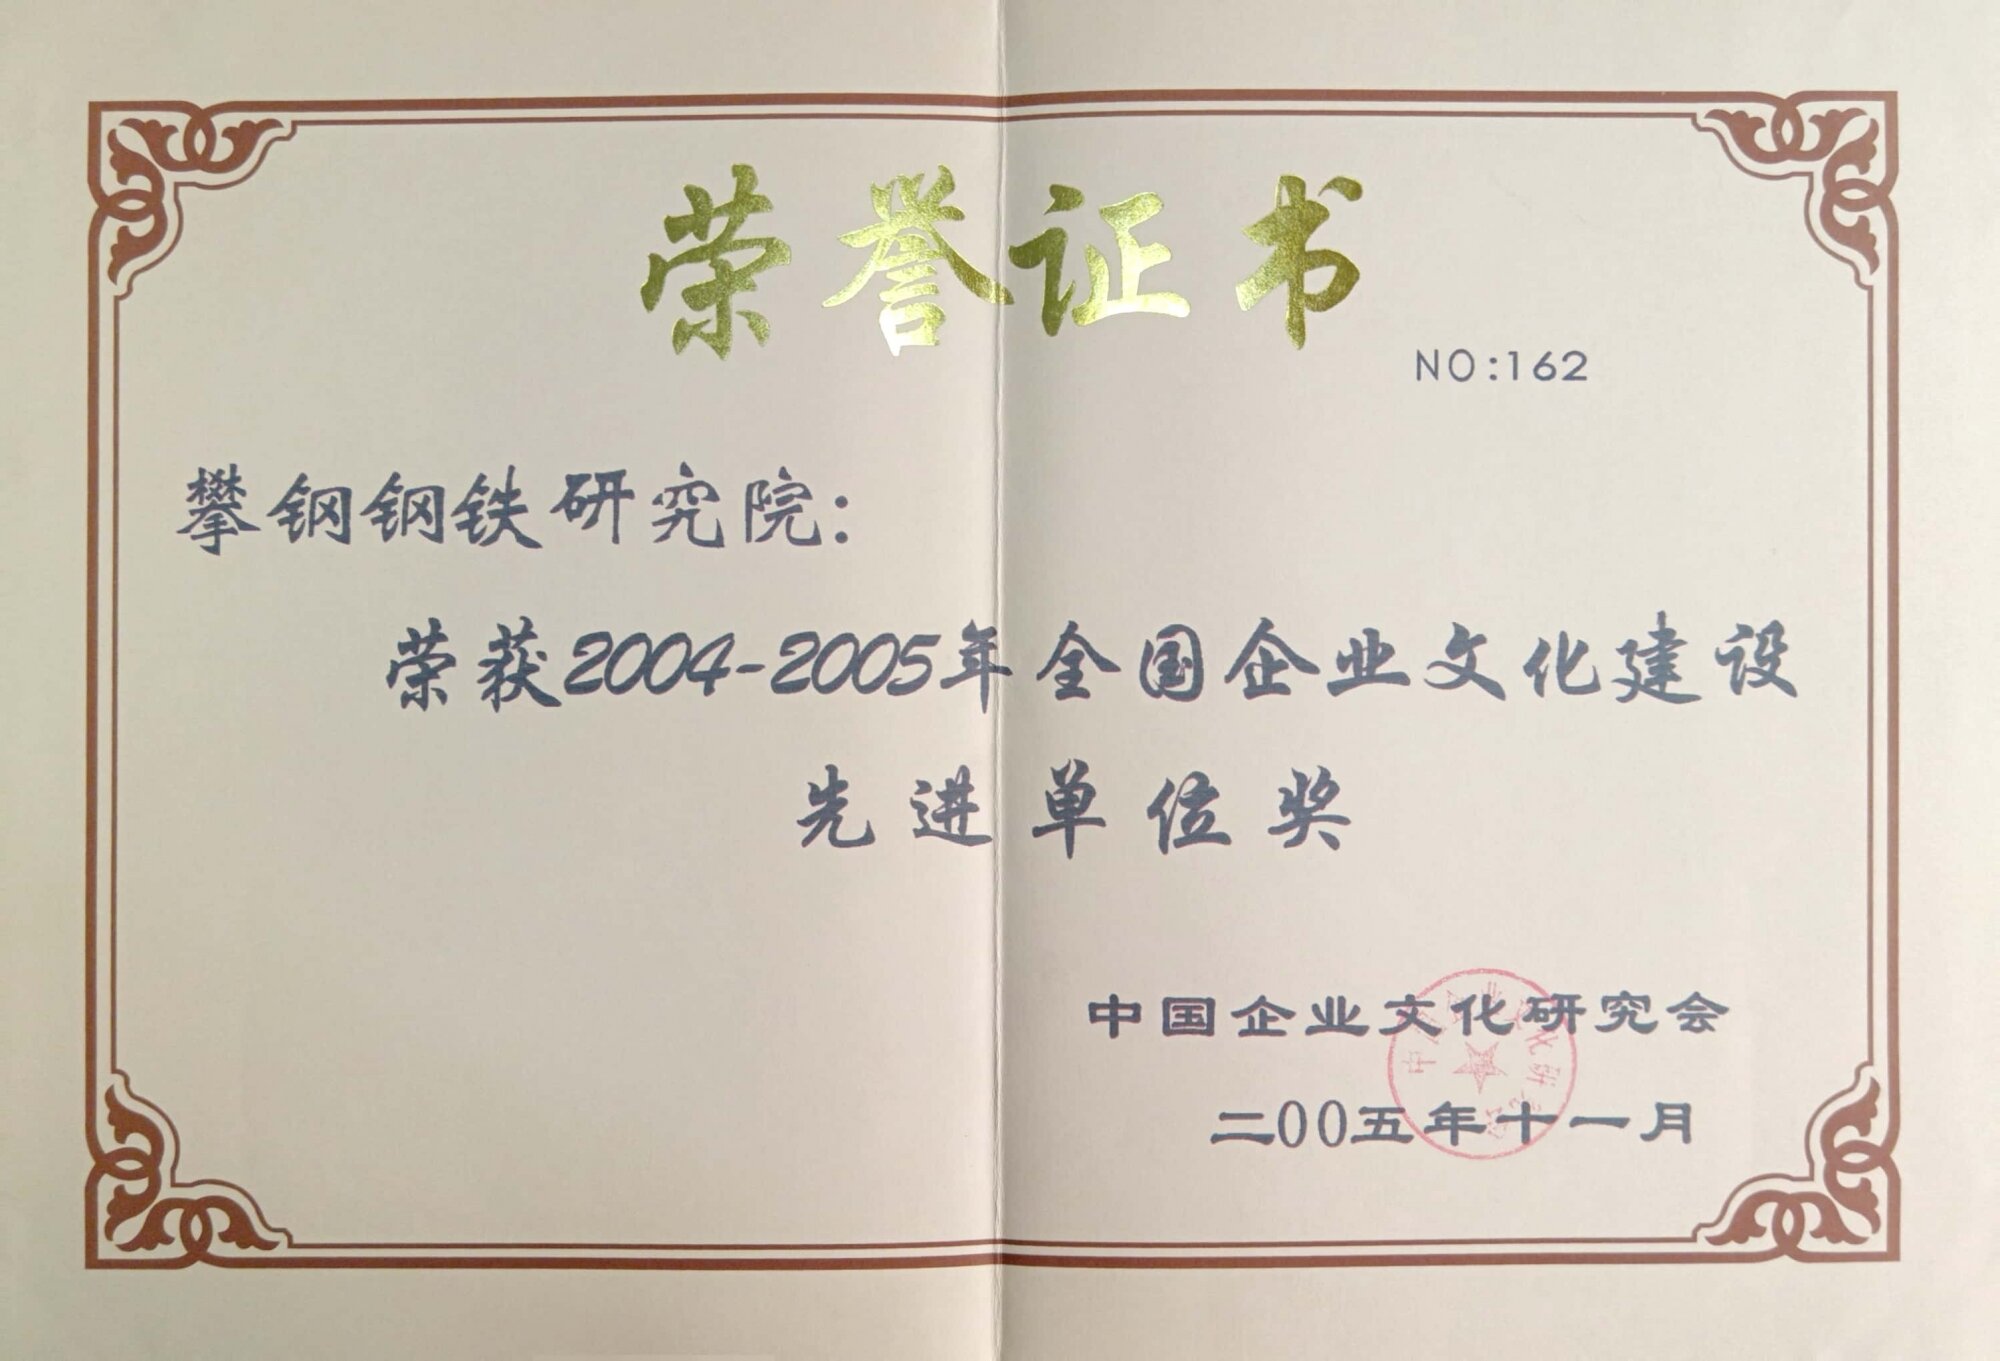 荣誉证书
NO:162
攀钢钢铁研究院：
荣获2004-2005年全国企业文化建设
先进单位奖
中国企业文化研究会
二00五年十一月
中国企业文化研究会